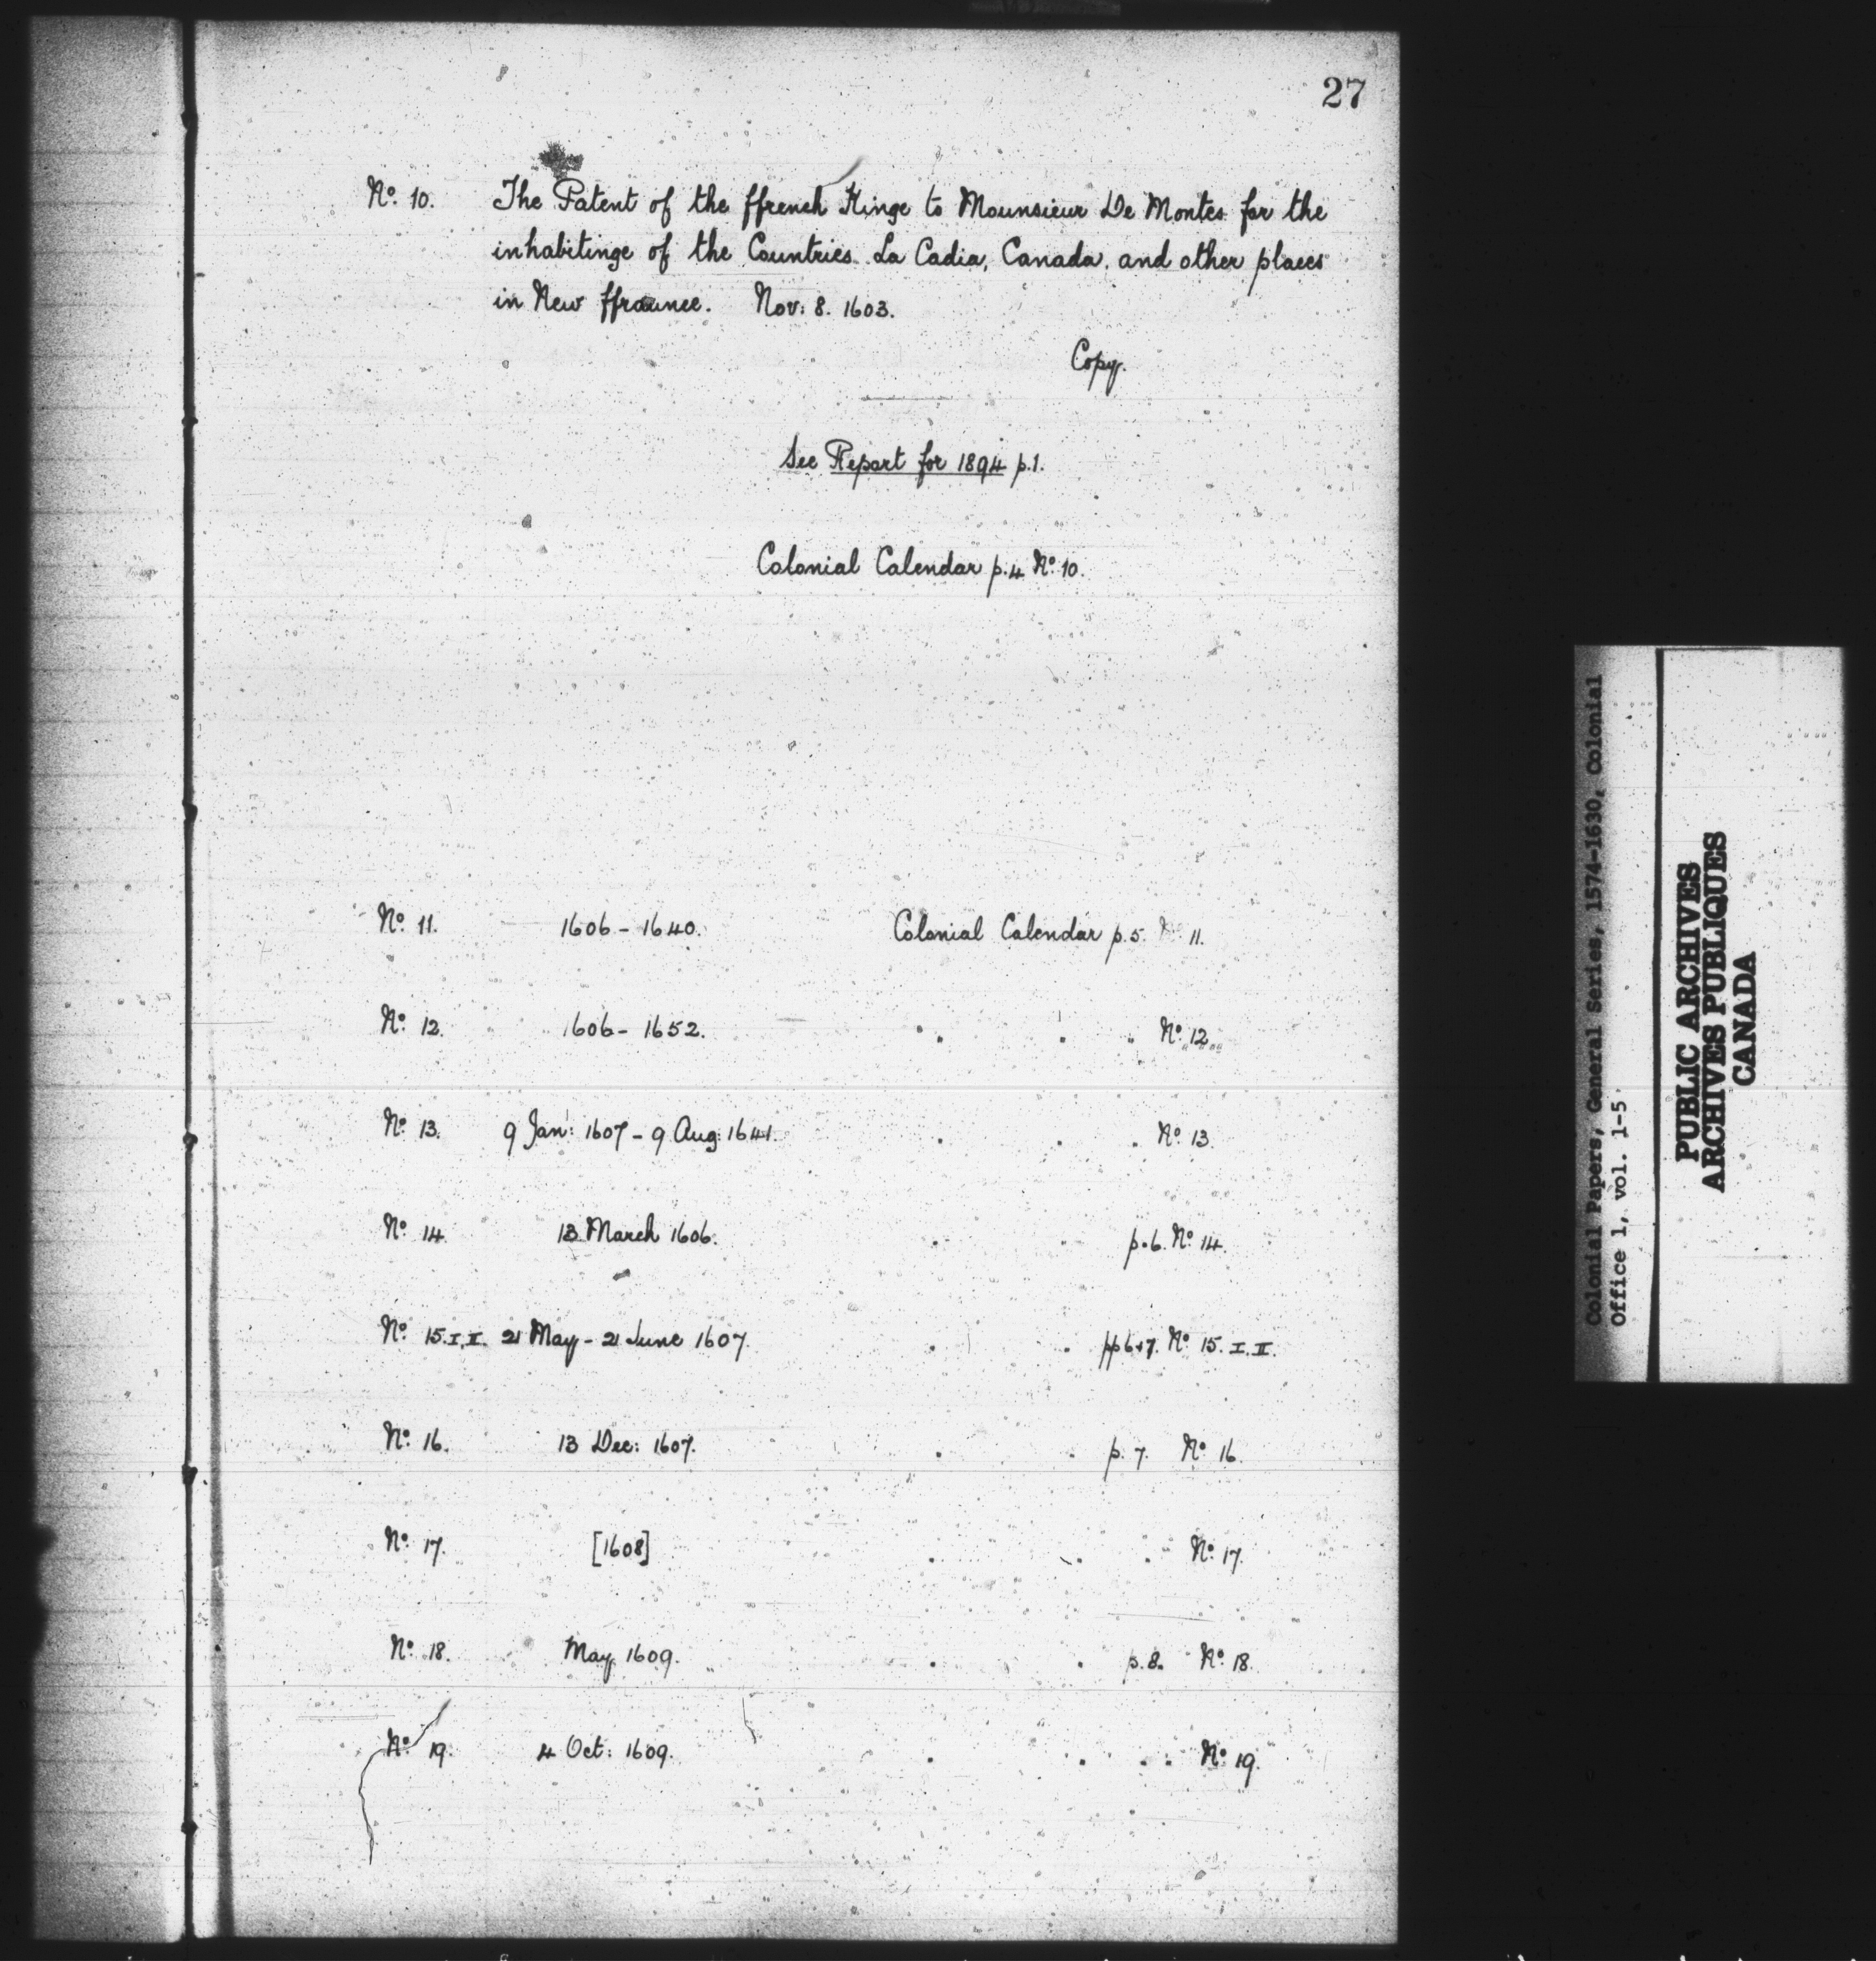 27
No. 10. The Patent of the ffrench Kinge to Mounsieur De Montes for the
inhabitinge of the Countries La Cadia, Canada, and other places
in New ffraunce. Nov: 8. 1603.
Copy.
See Report for 1894 p.1.
Colonial Calendar p.4 No. 10.
No. 11. 1606 - 1640. Colonial Calendar p.5. No. 11.
No. 12. 1606 - 1652. " " " No. 12
No. 13. 9 Jan: 1607 - 9 Aug: 1641. " " " No. 13.
No. 14. 13 March 1606. " " p.6. No. 14.
No. 15. I. II. 21 May - 21 June 1607. " " pp 6+7. No. 15. I. II.
No. 16. 13 Dec: 1607. " " p. 7. No. 16.
No. 17. [1608] " " " No. 17.
No. 18. May 1609. " " p.8. No. 18.
No. 19. 4 Oct: 1609. " " " No. 19.
Colonial Papers, General Series, 1574-1630, Colonial
Office 1, vol. 1-5
PUBLIC ARCHIVES
ARCHIVES PUBLIQUES
CANADA